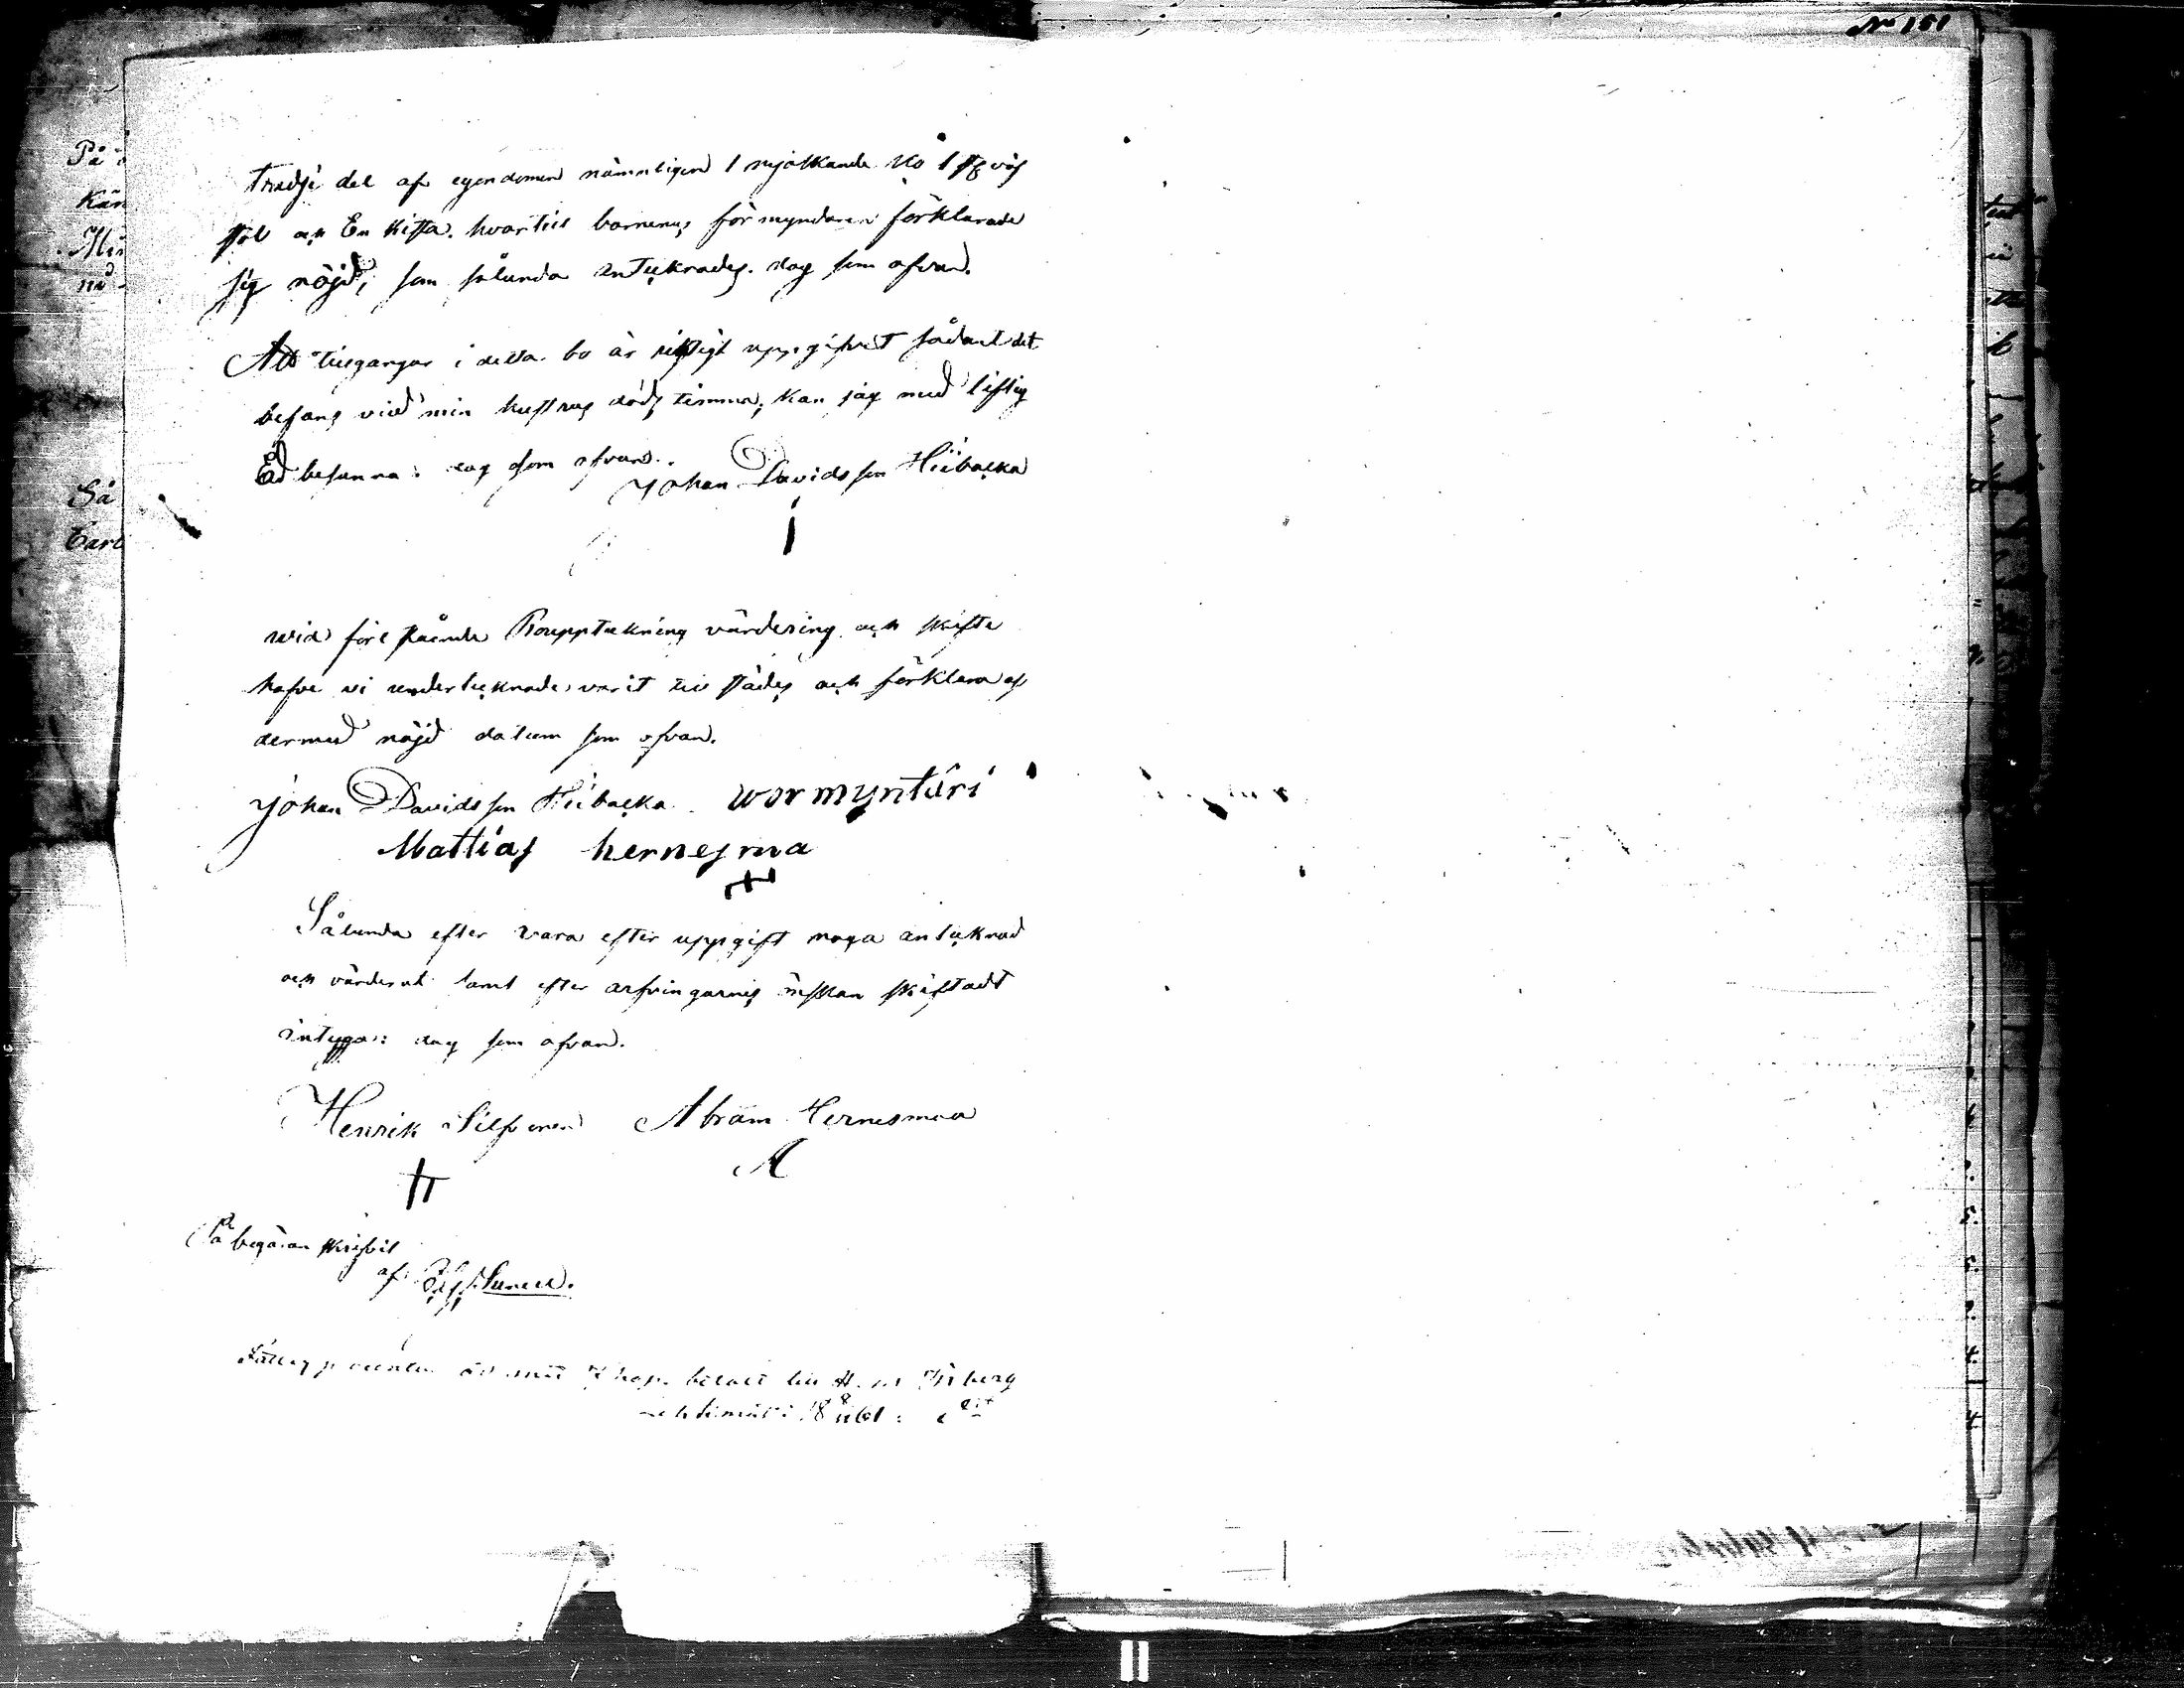 No 151
Tredje del af egendomen nämnligen 1 mjölkande Ko 1 st väf
stol och En Kista. hvartill barnens förmyndare förklarade
sig nöjd, som sålunda antecknades. dag som ofvan.
Att tillgångar i detta bo är riktigt uppgifvet sådant det
befans vid min hustrus döds timma, kan jag med liflig
Ed besanna: dag som ofvan.
Johan Davidsson Hiibacka
wid före stående Boupptekning värdering och skifte
hafve vi underteknade varit till städes och förklara oss
dermed nöjd datum som ofvan.
Johan Davidsson Hiibacka wormyntäri
Mattias hernesma
Sålunda efter vara efter uppgift noga anteknad
och värderat samt efter arfvingarnes önskan skiftadt
intygar: dag som ofvan.
Henrik Silfvenen Abram Hernesmaa
A
På begäran skrifvit
af
Fattig procenten
På
Kän
Så
Carl